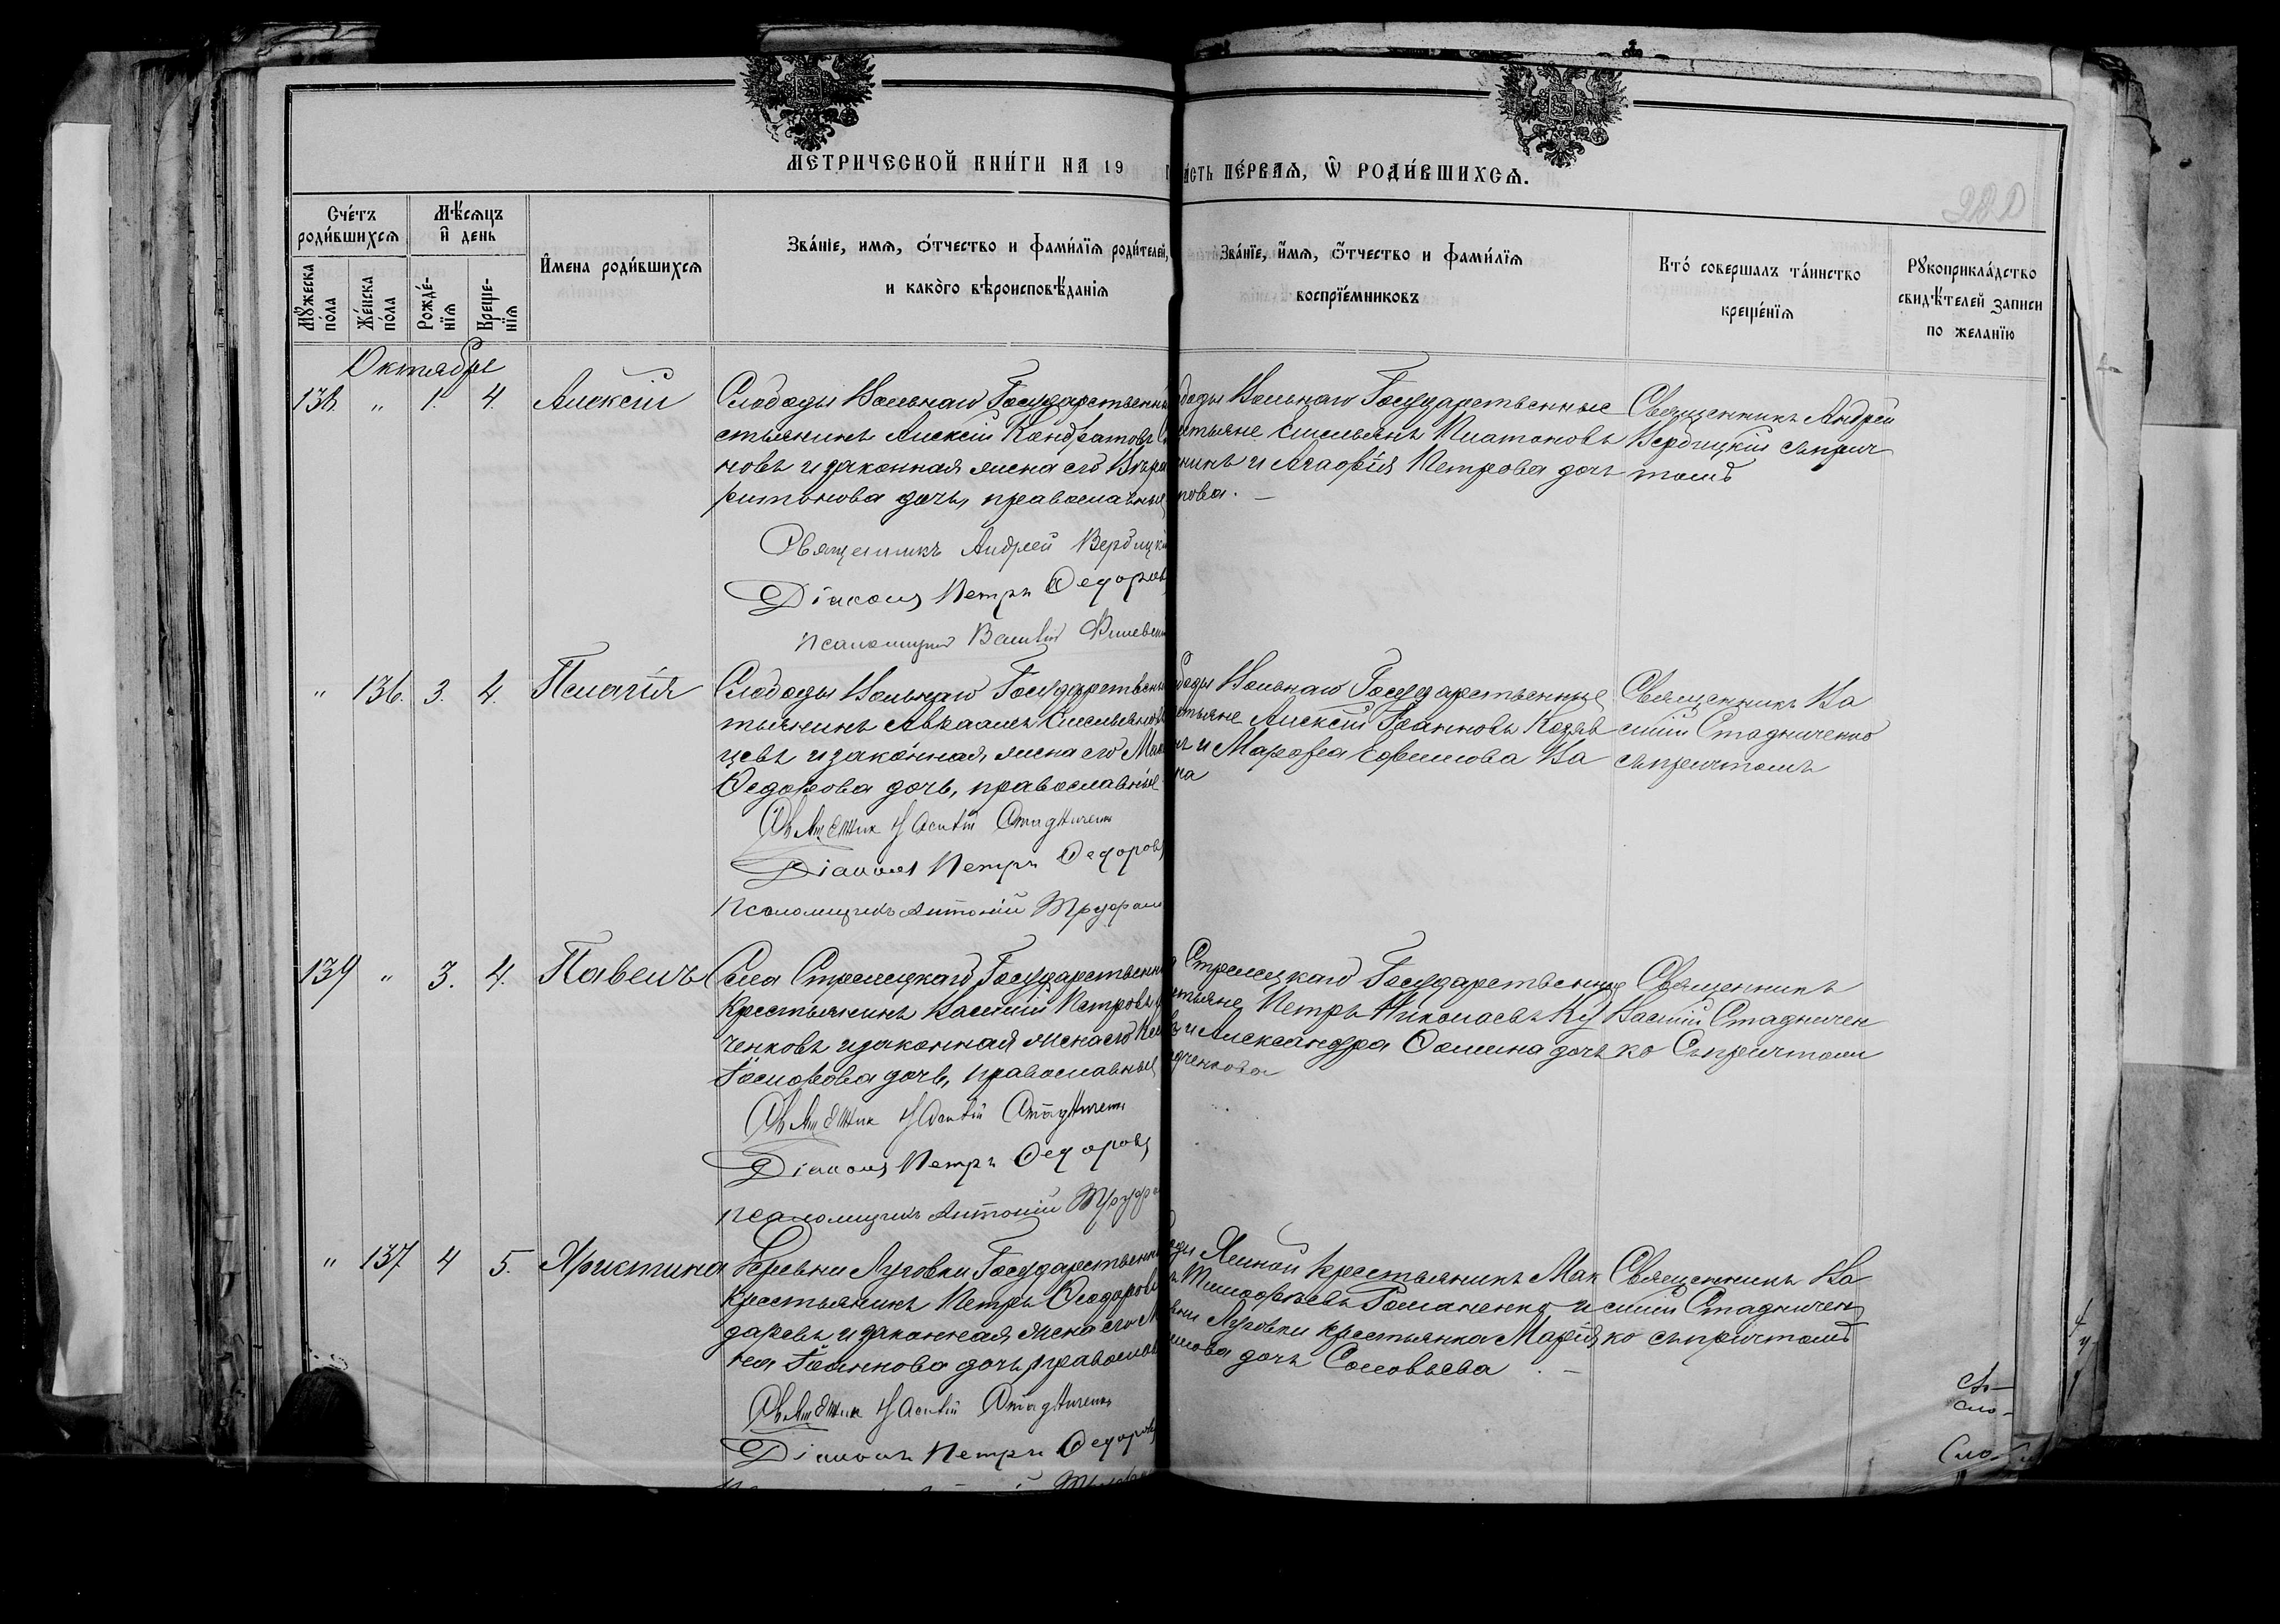 МЕТРИЧЕСКОЙ КНИ́ГИ НА 19
ЧА́СТЬ ПЕ́РВАЯ, Ѿ РОДИ́ВШИХСЯ.
Сче́тъ роди́вшихся
Мѣ́сяцъ и день
И́мена роди́вшихся
Зва́нїе, имя, о́тчество и фами́лїя роди́телей,
и како́го вѣроисповѣ́данїя
Зва́нїе, и́мя, о́тчество и фами́лїя
воспрїе́мниковъ
Кто́ соверша́лъ та́инство
креще́нїя
Рꙋкоприкла́дство
свидѣ́телей записи
по желанїю
Мꙋ́жеска по́ла
Же́нска по́ла
Рожде́нїя
Креще́нїя
Октябре
138. " 1. 4. Алексій
Слободы Вольнаго Государственны
стьянинъ Алексій Кондратовъ
новъ и законная жена его
ритонова дочь, православные
Священникъ Андрей Вердицкі
Діаконъ Петръ Ѳедоровъ
Псаломщикъ Василій
боды Вольнаго Государственные
стьяне Емельянъ Платоновъ
никъ и Агафія Петрова дочь
нова. —
Священникъ Андрей
Вердицкій съ прич
томъ
" 136. 3. 4. Пелагія
Слободы Вольнаго Государственны
тьянинъ Авраамъ Емельяновъ
цевъ и законная жена его
Ѳедорова дочь, православные
Священник Василій Стадниченк
Діаконъ Петръ Ѳедоровъ
Псаломщикъ Антоній
боды Вольнаго Государственные
стьяне Алексій Іоанновъ Козяв
и Марѳа Ефимова Ка
на
Священникъ Ва
силій Стадниченко
съ причтомъ
139 " 3. 4. Павелъ
Села Стрелецкаго Государственны
Крестьянинъ Василій Петровъ
ченковъ и законная жена его
Іосифова дочь, православные
Священник Василій Стадниченк
Діаконъ Петръ Ѳедоровъ
Псаломщикъ Антоній
Стрелецкаго Государственные
стьяне Петръ Николаевъ Ку
и Александра Ѳомина дочь
дченкова
Священникъ
Василій Стадничен
ко съ причтомъ
" 137 4 5. Христина
Деревни Луговки Государственны
Крестьянинъ Петръ Ѳеодоровъ
даревъ и законная жена его
на Іоаннова дочь, православ
Священник Василій Стадниченк
Діаконъ Петръ Ѳедоровъ
Ясиной крестьянинъ Мак
Тимофѣевъ Романенко и
вни Луговки крестьянка Марія
мова дочь Соловьева. —
Священникъ Ва
силій Стадничен
ко съ причтомъ